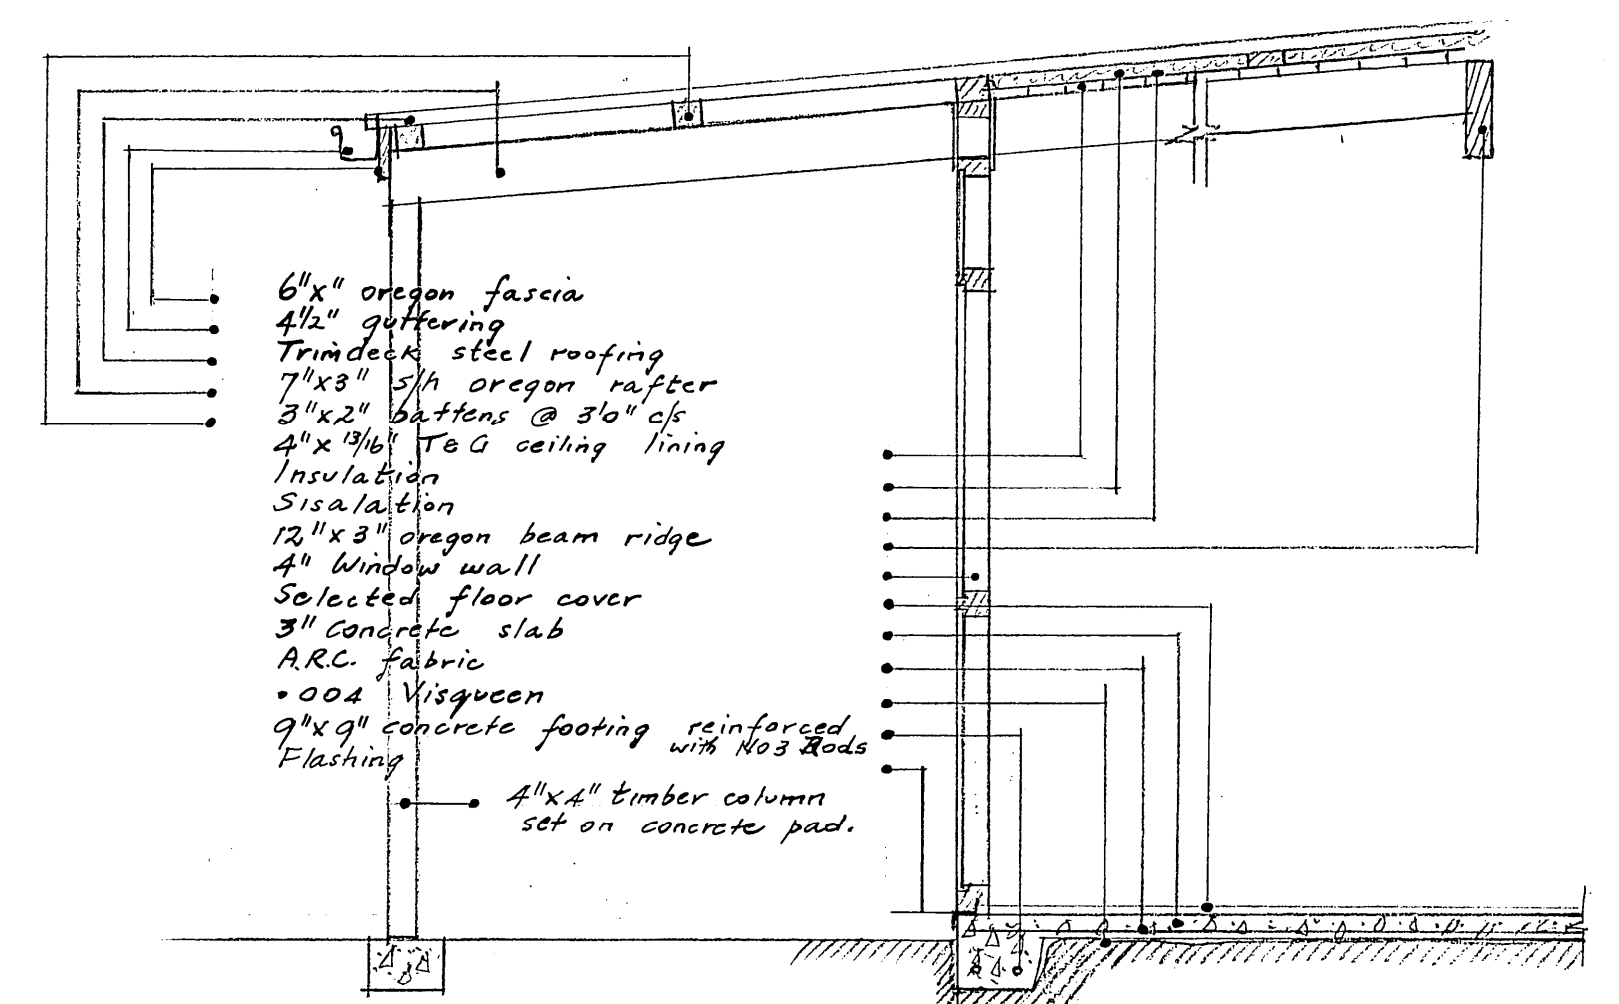 6"x" oregon fascia
4½" guttering
Trimdeck steel roofing
7"x3" s/h oregon rafter
3"x2" battens @ 3'0" c/s
4"x 13/16" T&G ceiling lining
Insulation
Sisalation
12"x3" oregon beam ridge
4" Window wall
Selected floor cover
3" Concrete slab
A.R.C. fabric
.004 Visqueen
9"x9" concrete footing reinforced
with No3 Rods
Flashing
4"x4" timber column
set on concrete pad.